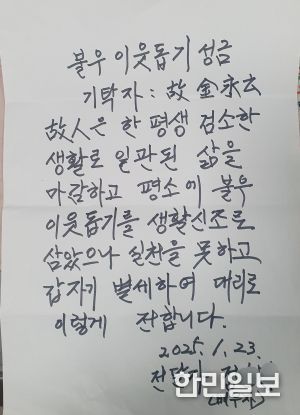 불우 이웃돕기 성금
기탁자 : 故 金永玄
故人은 한 평생 검소한
생활로 일관된 삶을
마감하고 평소에 불우
이웃돕기를 생활신조로
삼았으나 실천을 못하고
갑자기 별세하여 대리로
이렇게 전합니다.
2025. 1. 23.
한민일보